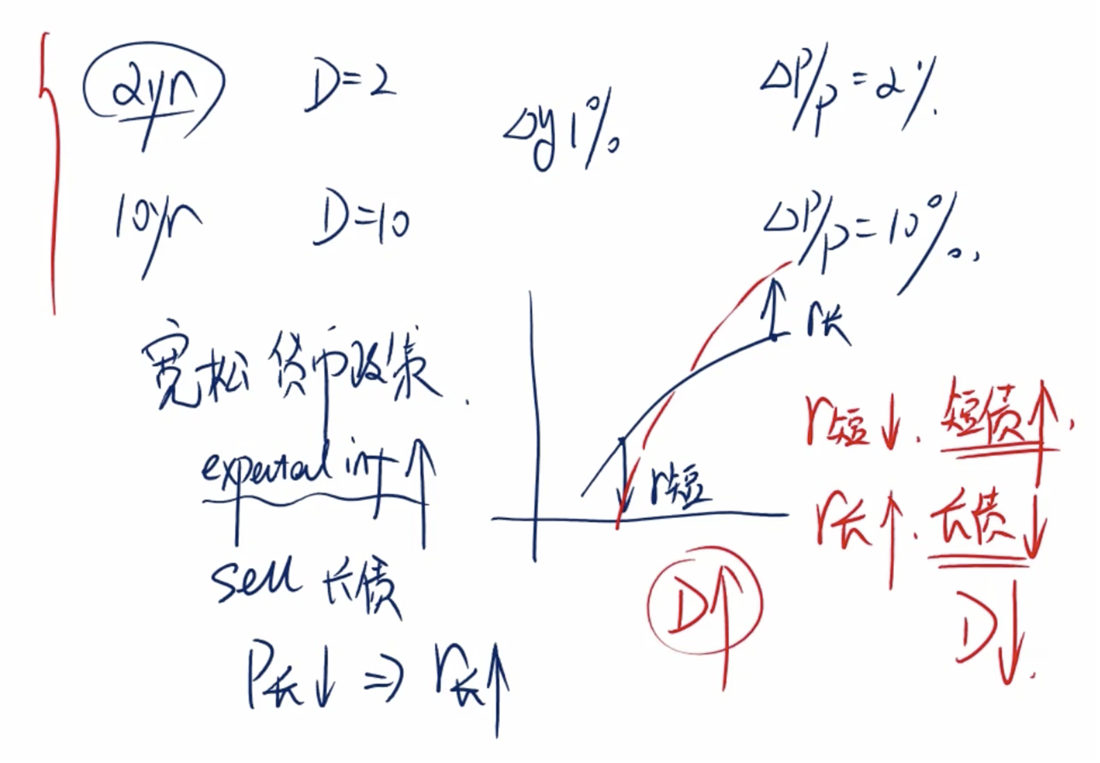 2yr D=2 ΔP/P=2%.
Δy 1%
10yr D=10 ΔP/P=10%.
r长
宽松货币政策.
r短↓. 短债↑.
expected inf↑
r短
r长↑. 长债↓
sell 长债
D↑
D↓.
P长↓ ⇒ r长↑